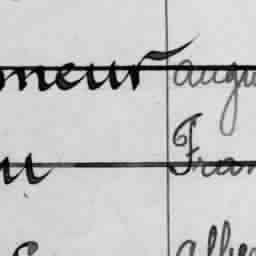 meur augu
u Fran
albe